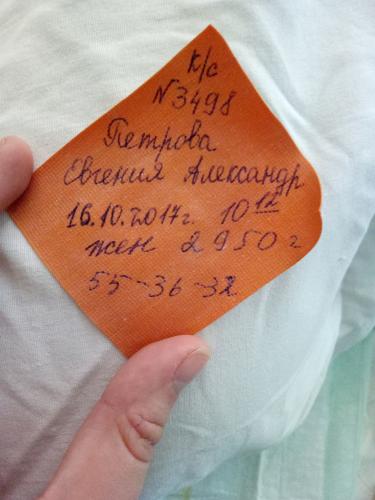 к/с
N3498
Петрова
Евгения Александр
16.10.2017г. 10 12
жен 2950 г
55-36-32